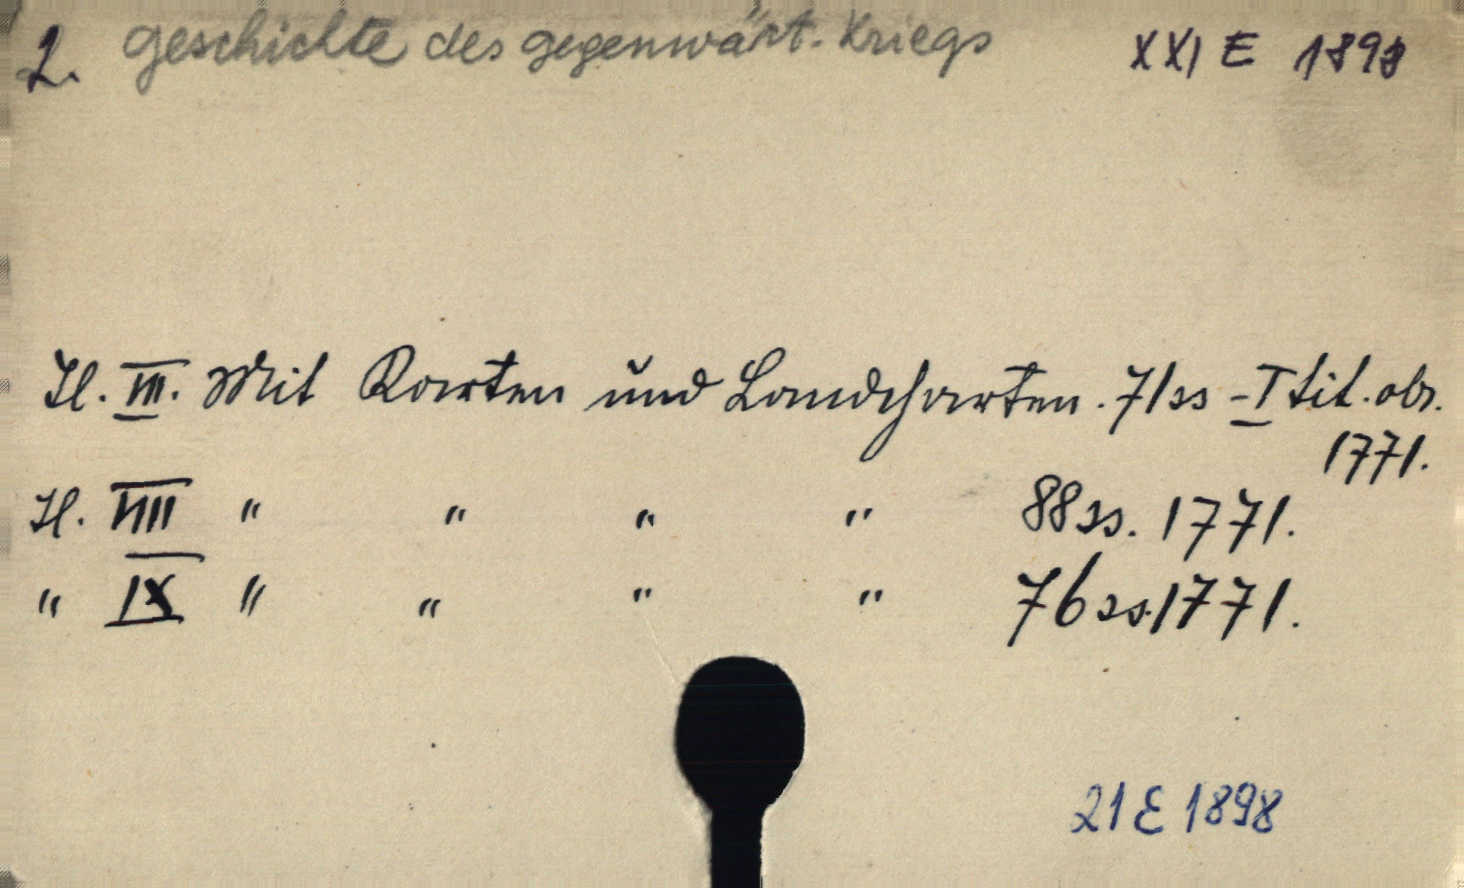 2. Geschichte des gegenwärt. Kriegs XXI E 1898
Tl. VII. Mit Karten und Landcharten. 71 ss - I tit. obr.
1771.
Tl. VIII " " " " 88 ss. 1771.
" IX " " " " 76 ss. 1771.
21 E 1898